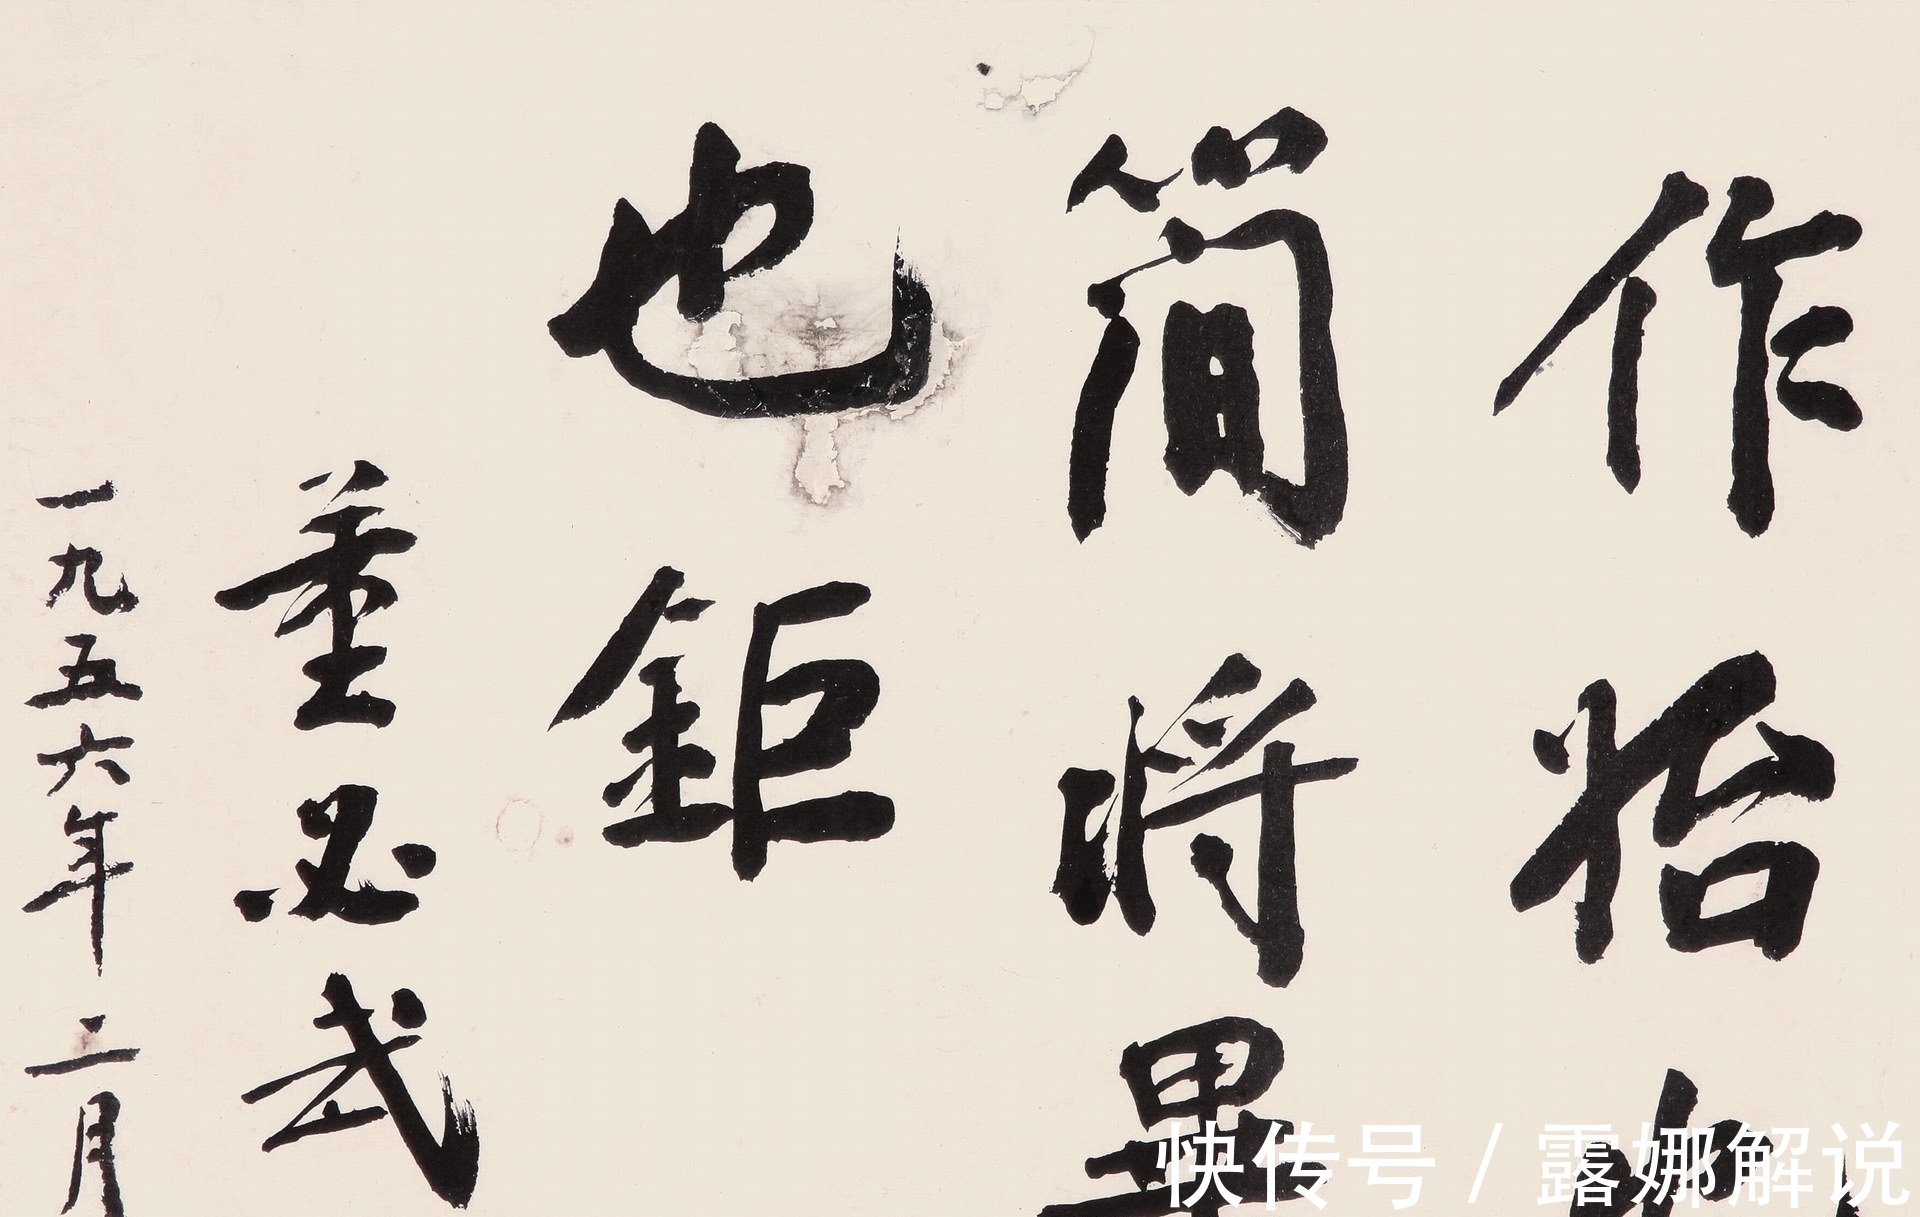 作始
簡將畢
也鉅
董必武
一九五六年二月
快传号 / 露娜解说